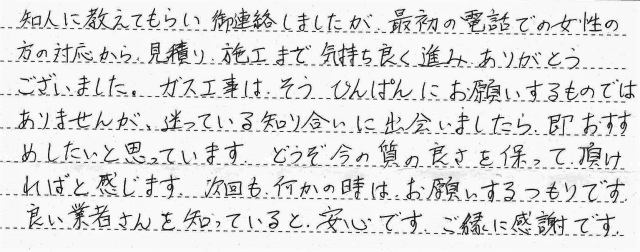 知人に教えてもらい御連絡しましたが、最初の電話での女性の
方の対応から、見積り、施工まで気持ち良く進み、ありがとう
ございました。ガス工事は、そうひんぱんにお願いするものでは
ありませんが、迷っている知り合いに出会いましたら、即おすす
めしたいと思っています。どうぞ今の質の良さを保って頂け
ればと感じます。次回も何かの時はお願いするつもりです。
良い業者さんを知っていると、安心です。ご縁に感謝です。